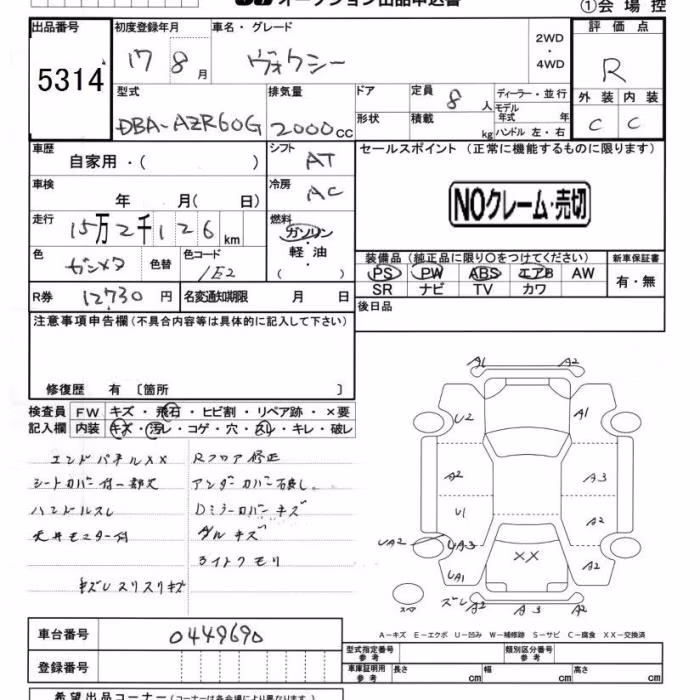 オークション出品申込書
①会場控
出品番号
5314
初度登録年月
17 8月
車名・グレード
ヴォクシー
2WD
・
4WD
評価点
R
外装 内装
C C
型式
DBA-AZR60G
排気量
2000cc
ドア
形状
定員 8人
積載 kg
ディーラー・並行
モデル年式 年
ハンドル 左・右
車歴
自家用・( )
シフト
AT
車検
年 月( 日)
冷房
AC
走行
15万2千126km
燃料
ガソリン
軽・油
( )
色
ガンメタ
色替
色コード
1E2
R券 12730円
名変通知期限 月 日
セールスポイント (正常に機能するものに限ります)
NOクレーム・売切
装備品 (純正品に限り○をつけてください)
PS PW ABS エアB AW
SR ナビ TV カワ
新車保証書
有・無
後日品
注意事項申告欄(不具合内容等は具体的に記入して下さい)
修復歴 有 〔箇所 〕
検査員
記入欄
FW キズ・飛石・ヒビ割・リペア跡・×要
内装 キズ・汚レ・コゲ・穴・スレ・キレ・破レ
エンドパネルXX
シートカバー付一部欠
ハンドルスレ
天井モニター付
Rフロア修正
アンダーカバー破レ
Dミラーカバーキズ
グルキズ
キズレスリスリキズ
A1 A2
U2 A1
A2 A3
U1 A2
UA2 UA3 A2
XX
UA1
スペア
ズレ A2 A3 A2
A−キズ E−エクボ U−凹み W−補修跡 S−サビ C−腐食 XX−交換済
車台番号
0449690
登録番号
型式指定番号
参考
類別区分番号
参考
車庫証明用
参考
長さ cm 幅 cm 高さ cm
希望出品コーナー(コーナーは各会場により異なります)